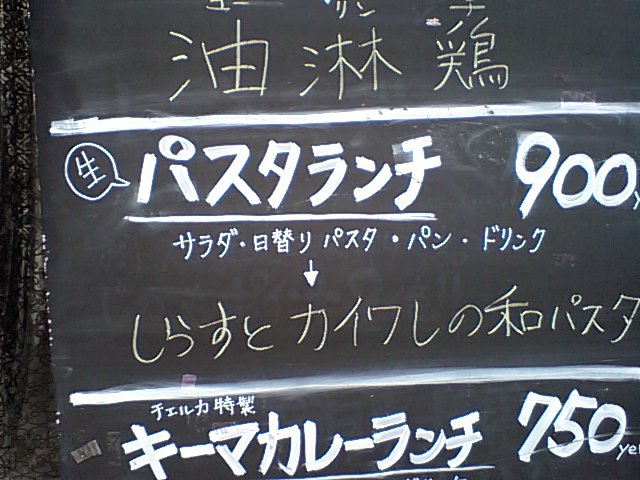 ユー リン チ
油淋鶏
生 パスタランチ 900y
サラダ・日替りパスタ・パン・ドリンク
↓
しらすとカイワレの和パスタ
チェルカ特製
キーマカレーランチ 750yen